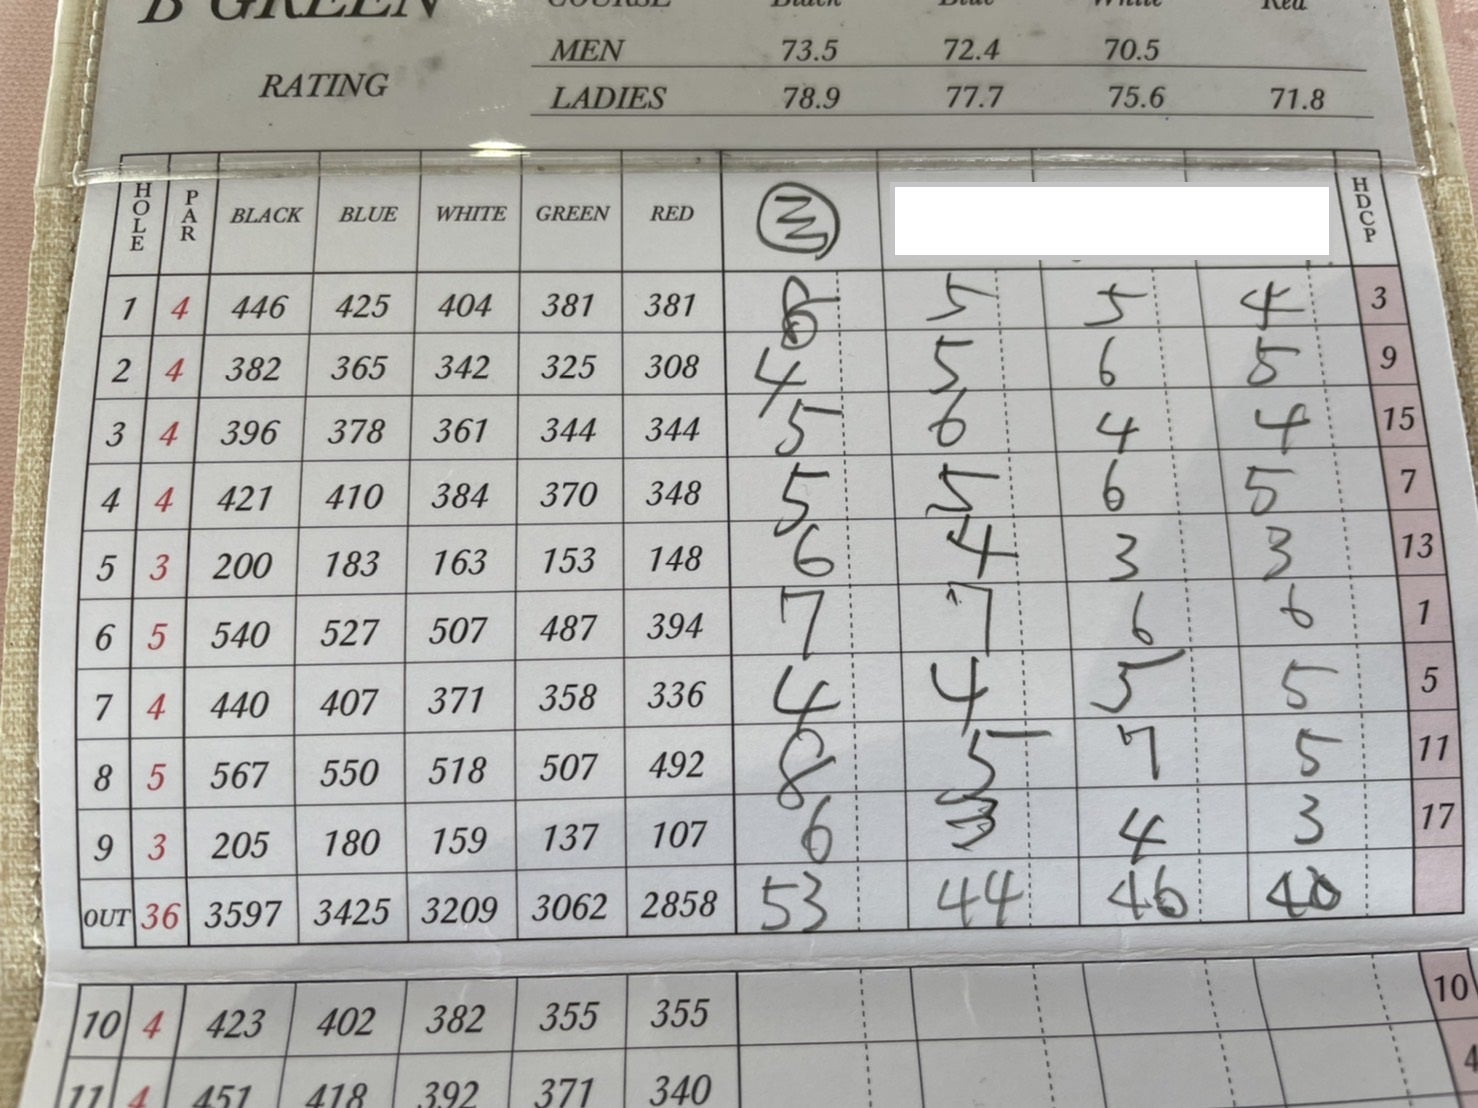 B GREEN
COURSE Black Blue White Red
MEN 73.5 72.4 70.5
RATING
LADIES 78.9 77.7 75.6 71.8
HOLE PAR BLACK BLUE WHITE GREEN RED HDCP
1 4 446 425 404 381 381 5 5 4 3
2 4 382 365 342 325 308 4 5 6 5 9
3 4 396 378 361 344 344 5 6 4 4 15
4 4 421 410 384 370 348 5 5 6 5 7
5 3 200 183 163 153 148 6 4 3 3 13
6 5 540 527 507 487 394 7 7 6 6 1
7 4 440 407 371 358 336 4 4 5 5 5
8 5 567 550 518 507 492 8 5 7 5 11
9 3 205 180 159 137 107 6 3 4 3 17
OUT 36 3597 3425 3209 3062 2858 53 44 46 40
10 4 423 402 382 355 355 10
11 4 451 418 392 371 340 4